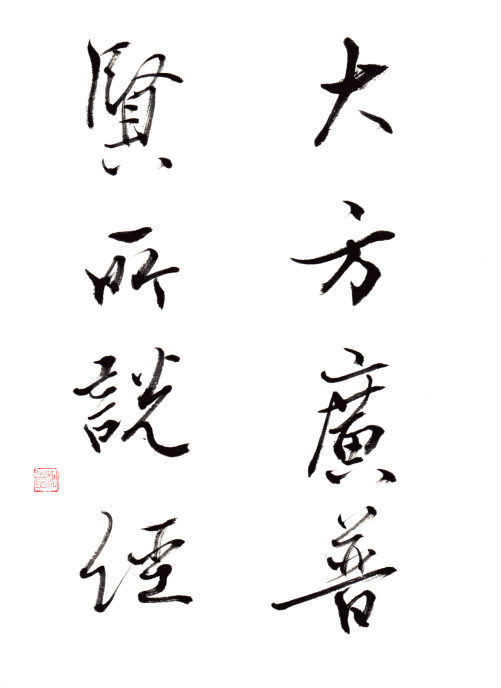 大方廣普
賢所説經